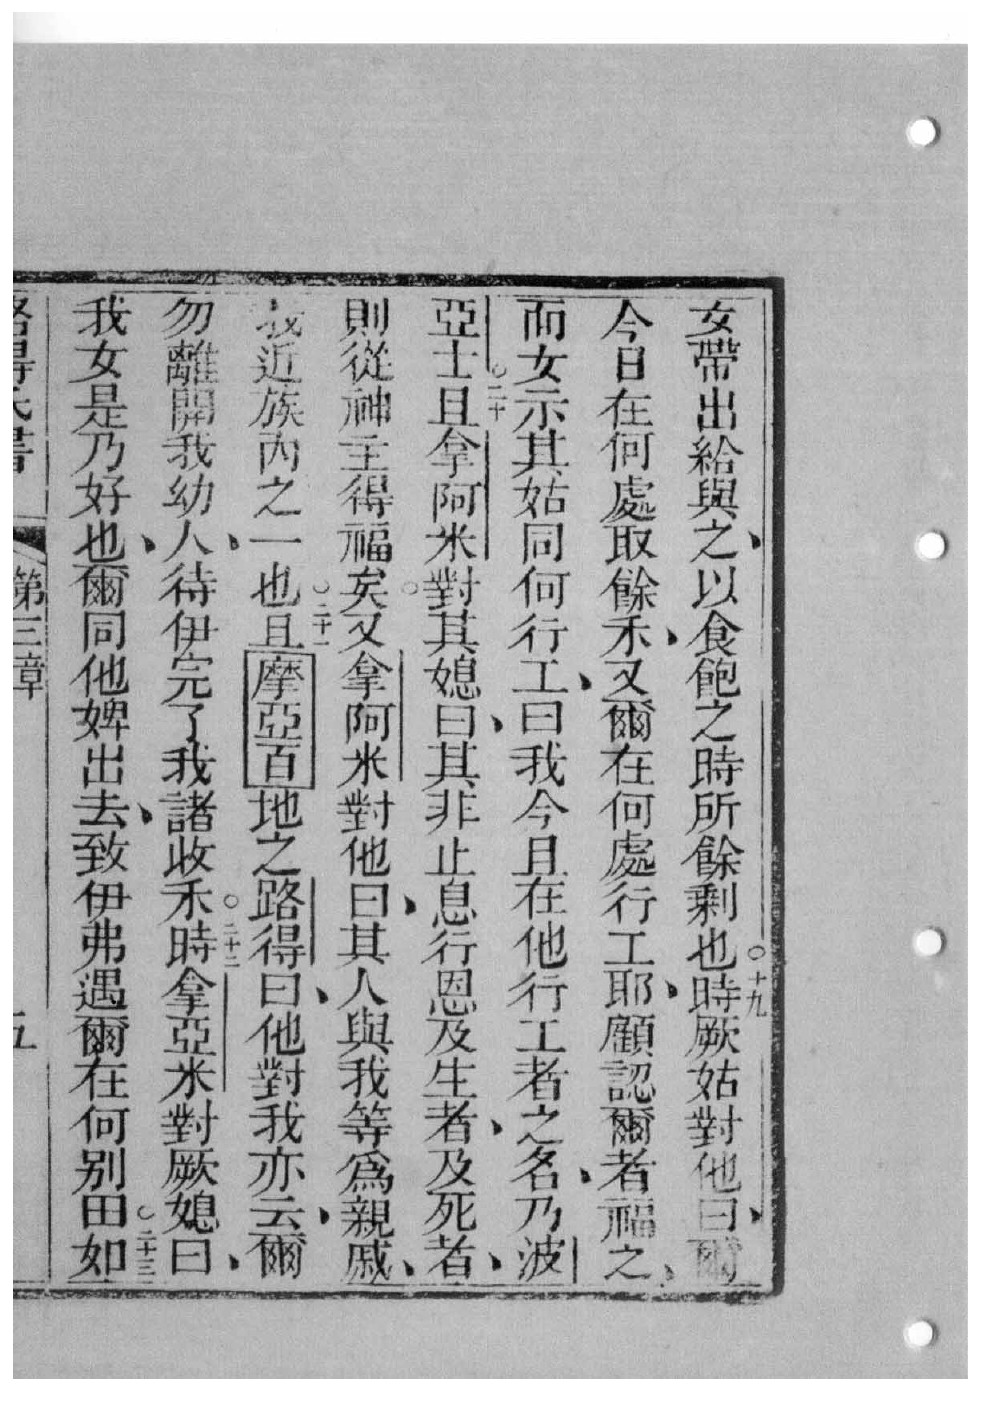 女帶出給與之、以食飽之時所餘剩也○十九時厥姑對他曰、爾
今日在何處取餘禾、又爾在何處行工耶、顧認爾者福之、
而女示其姑同何行工、曰我今且在他行工者之名、乃波
亞士○二十且拿阿米對其媳曰、其非止息行恩及生者、及死者、
則從神主得福矣○又拿阿米對他曰、其人與我等爲親戚、
我近族內之一也○二十一且摩亞百地之路得曰、他對我亦云、爾
勿離開我幼人、待伊完了我諸收禾時○二十二拿亞米對厥媳曰、
我女是乃好也、爾同他婢出去、致伊弗遇爾在何別田○二十三如
路得氏書 第三章 五